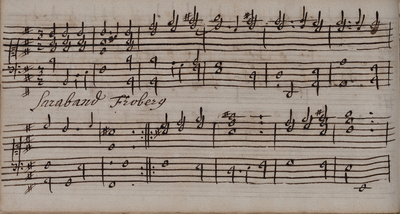 Saraband Froberg